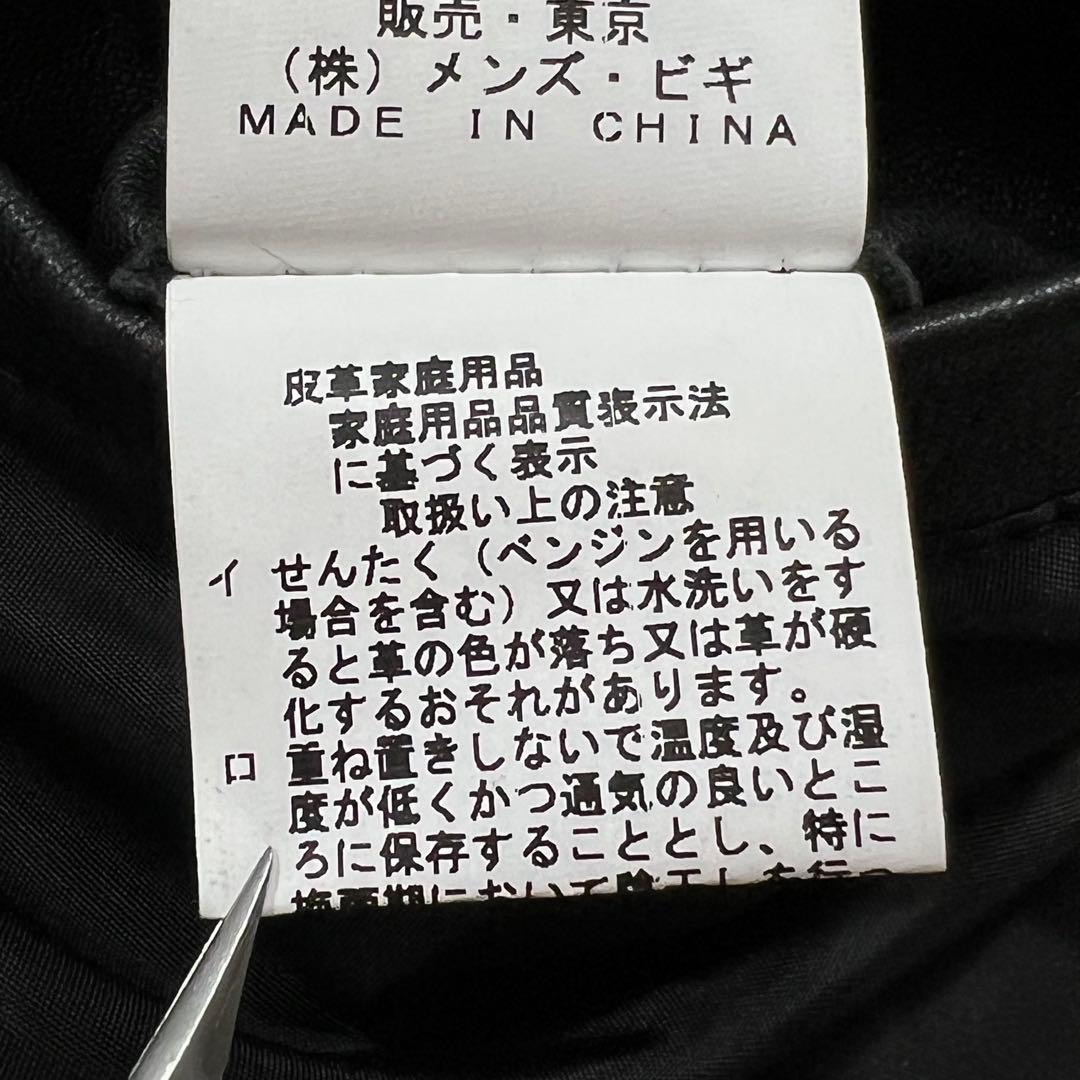 販売・東京
(株) メンズ・ビギ
MADE IN CHINA
皮革家庭用品
家庭用品品質表示法
に基づく表示
取扱い上の注意
イ せんたく (ベンジンを用いる
場合を含む) 又は水洗いをす
ると革の色が落ち又は革が硬
化するおそれがあります。
ロ 重ね置きしないで温度及び湿
度が低くかつ通気の良いとこ
ろに保存することとし、特に
梅雨期において陰干しを行っ